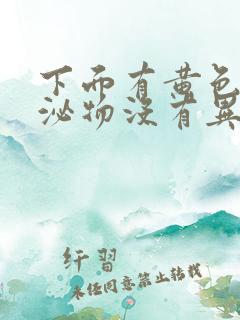 下面有黄色
泌物没有异
纤習
未经同意禁止转载